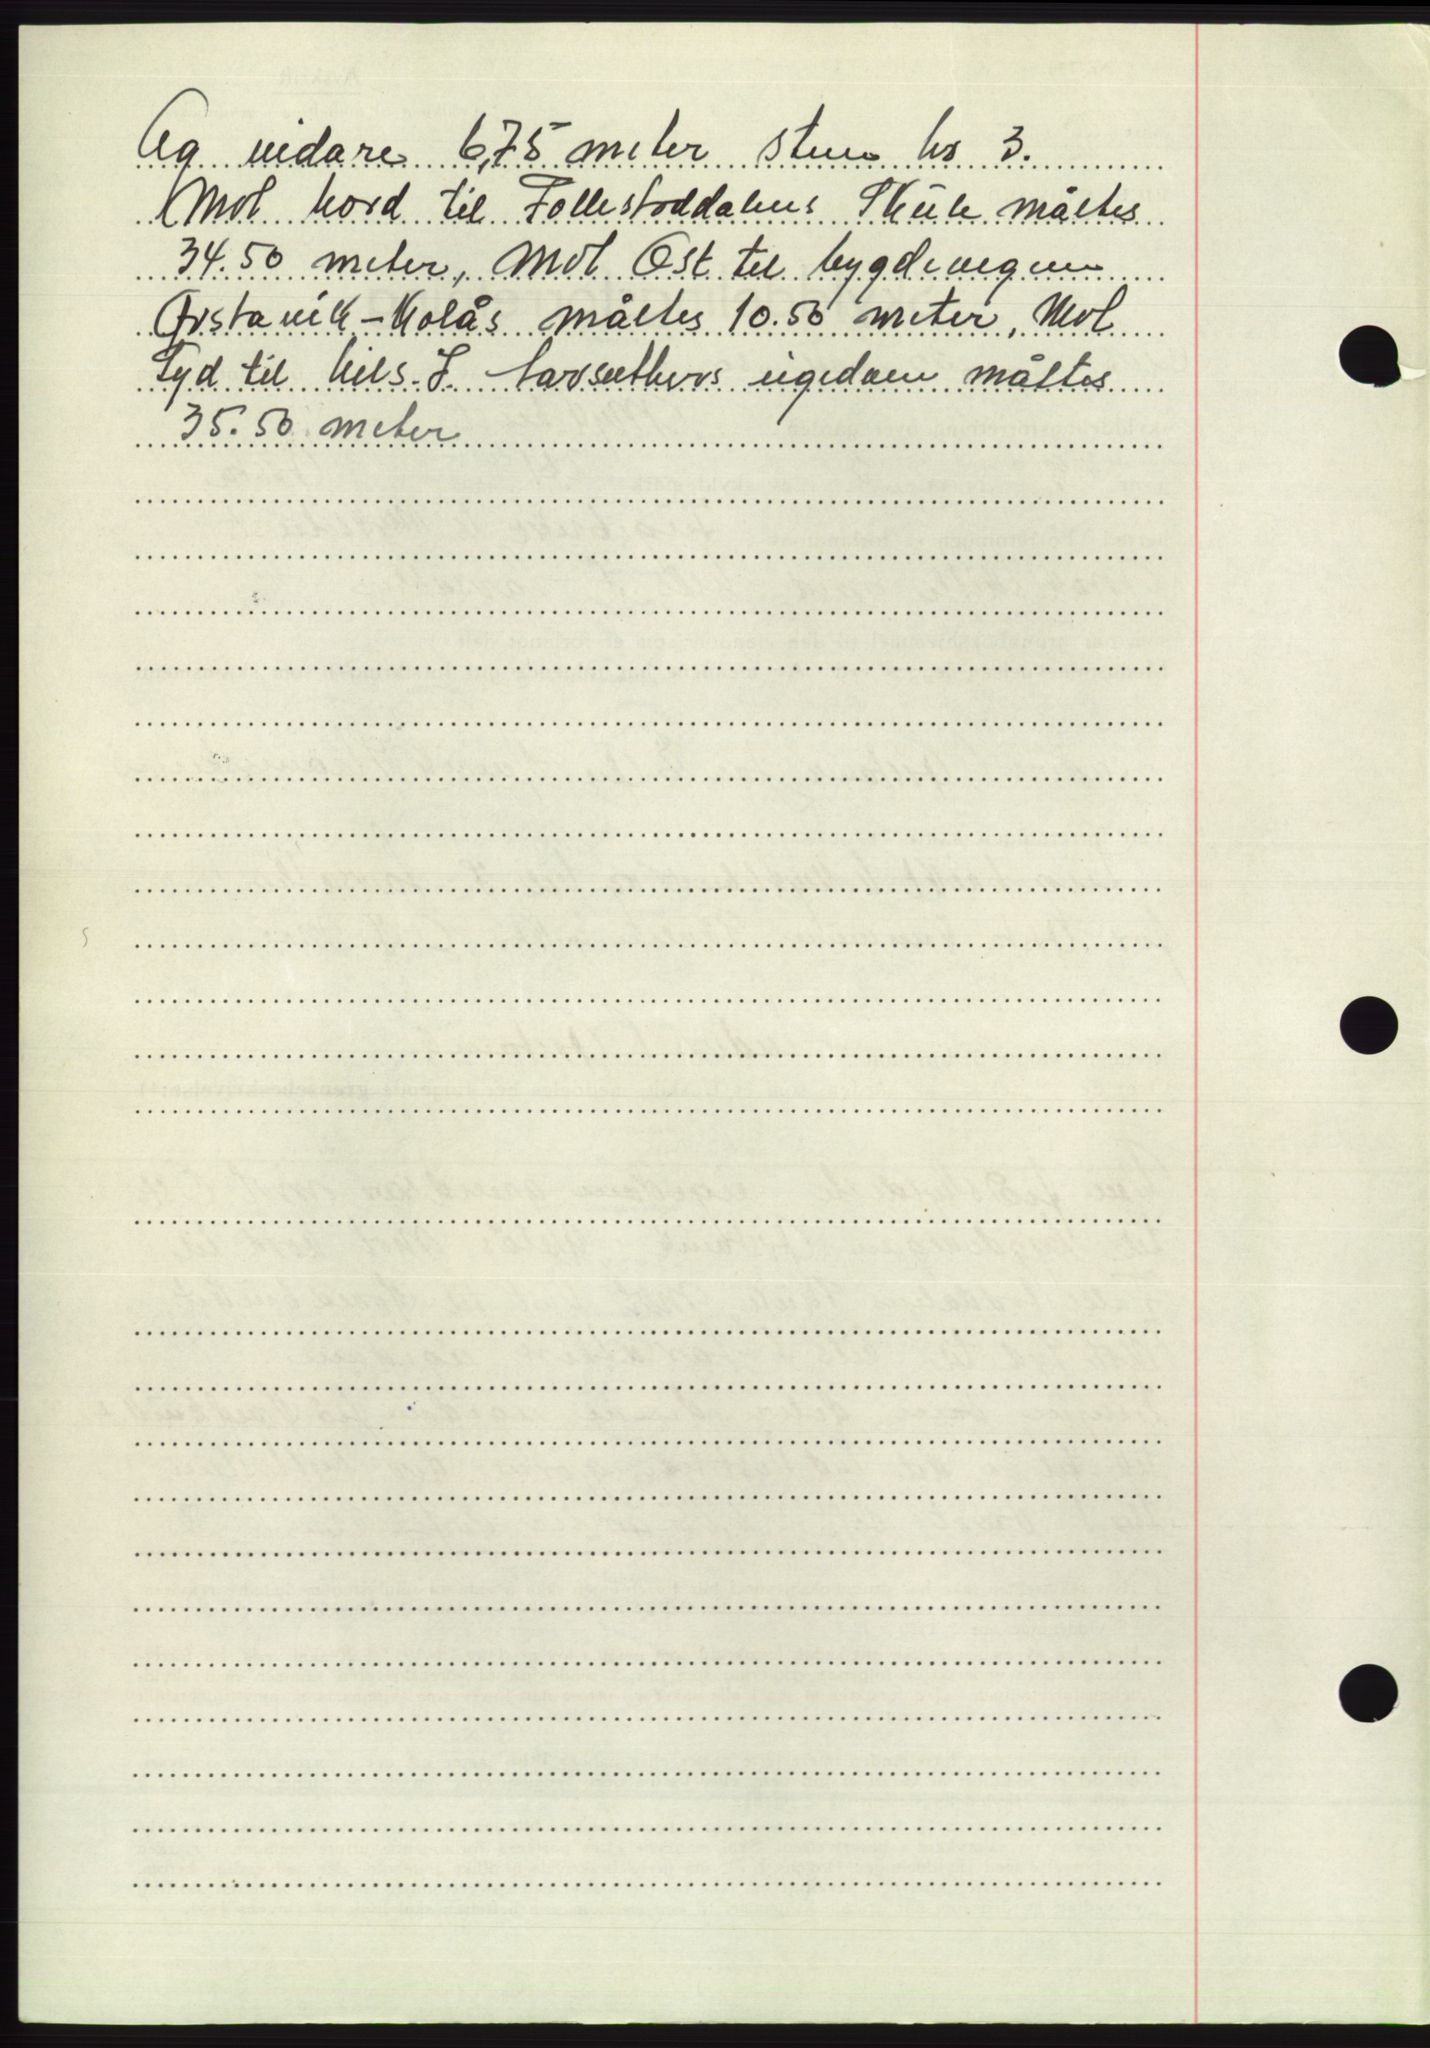 Og vidare 6,75 meter sten nr 3.
Mot Nord til Follestaddalens Skule måltes
34.50 meter, Mot Øst til bygdevegen
Ørstavik – Kolås måltes 10.50 meter, Mot
Syd til Nils. J. Aarsethers eigedom måltes
35.50 meter